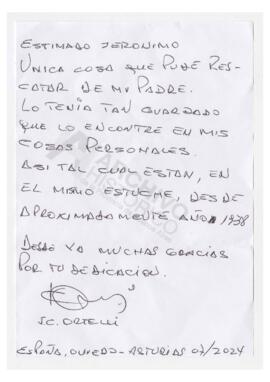 ESTIMADO JERONIMO
UNICA COSA QUE PUDE RES-
CATAR DE MI PADRE.
LO TENIA TAN GUARDADO
QUE LO ENCONTRE EN MIS
COSAS PERSONALES.
ASI TAL CUAL ESTAN, EN
EL MISMO ESTUCHE, DESDE
APROXIMADAMENTE AÑO 1938
DESDE YA MUCHAS GRACIAS
POR TU DEDICACION.
J.C. ORTELLI
ESPAÑA, OVIEDO - ASTURIAS 07/2024
ARCHIVO
HISTORICO